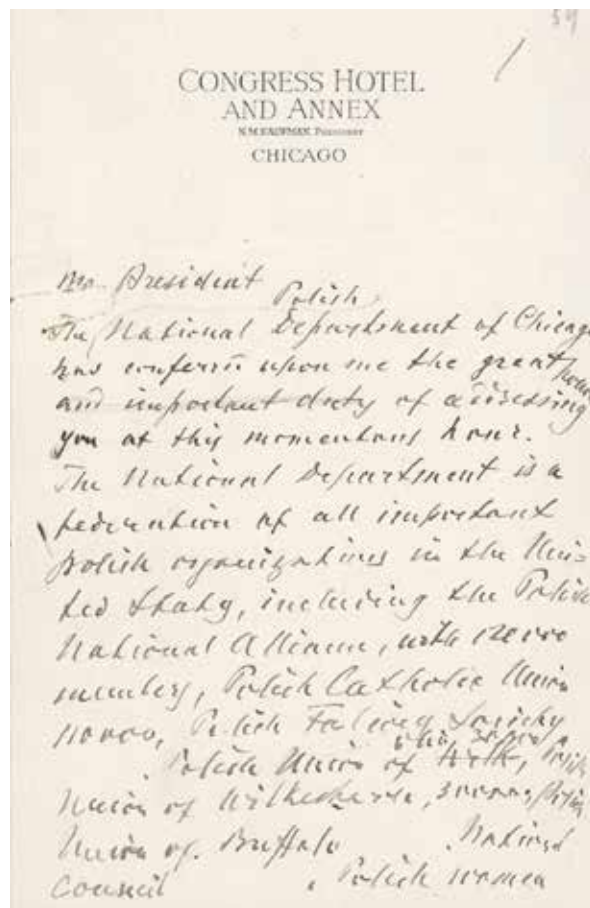 59
CONGRESS HOTEL
AND ANNEX
N.M. KAUFMAN, PRESIDENT
CHICAGO
Mr. President
Polish
The National Department of Chicago
has conferred upon me the great honor
and important duty of addressing
you at this momentous hour.
The National Department is a
federation of all important
polish organizations in the Uni-
ted States, including the Polish
National Alliance, with
members, Polish Catholic Union
Polish Falcons Society
Polish Union of
Union of Wilkesbarre,
Union of Buffalo National
Council Polish women